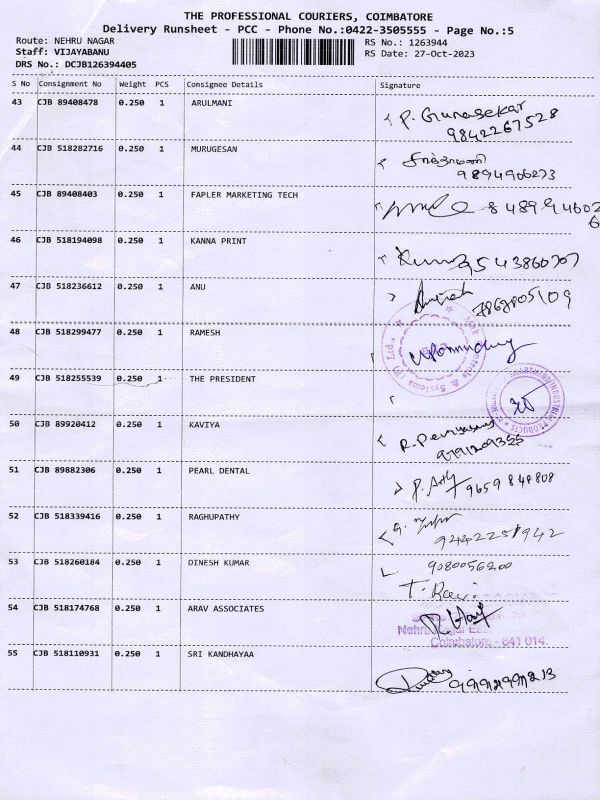 THE PROFESSIONAL COURIERS, COIMBATORE
Delivery Runsheet - PCC - Phone No.:0422-3505555 - Page No.:5
Route: NEHRU NAGAR
Staff: VIJAYABANU
DRS No.: DCJB126394405
RS No.: 1263944
RS Date: 27-Oct-2023
S No Consignment No Weight PCS Consignee Details Signature
43 CJB 89408478 0.250 1 ARULMANI P. Gunasekar
9842267528
44 CJB 518282716 0.250 1 MURUGESAN
9894906273
45 CJB 89408403 0.250 1 FAPLER MARKETING TECH
46 CJB 518194098 0.250 1 KANNA PRINT
9543860707
47 CJB 518236612 0.250 1 ANU
48 CJB 518299477 0.250 1 RAMESH
49 CJB 518255539 0.250 1 THE PRESIDENT
50 CJB 89920412 0.250 1 KAVIYA
51 CJB 89882306 0.250 1 PEARL DENTAL
9659848808
52 CJB 518339416 0.250 1 RAGHUPATHY
53 CJB 518260184 0.250 1 DINESH KUMAR 9080056200
T. Ravi
54 CJB 518174768 0.250 1 ARAV ASSOCIATES
Coimbatore - 641 014.
55 CJB 518110931 0.250 1 SRI KANDHAYAA